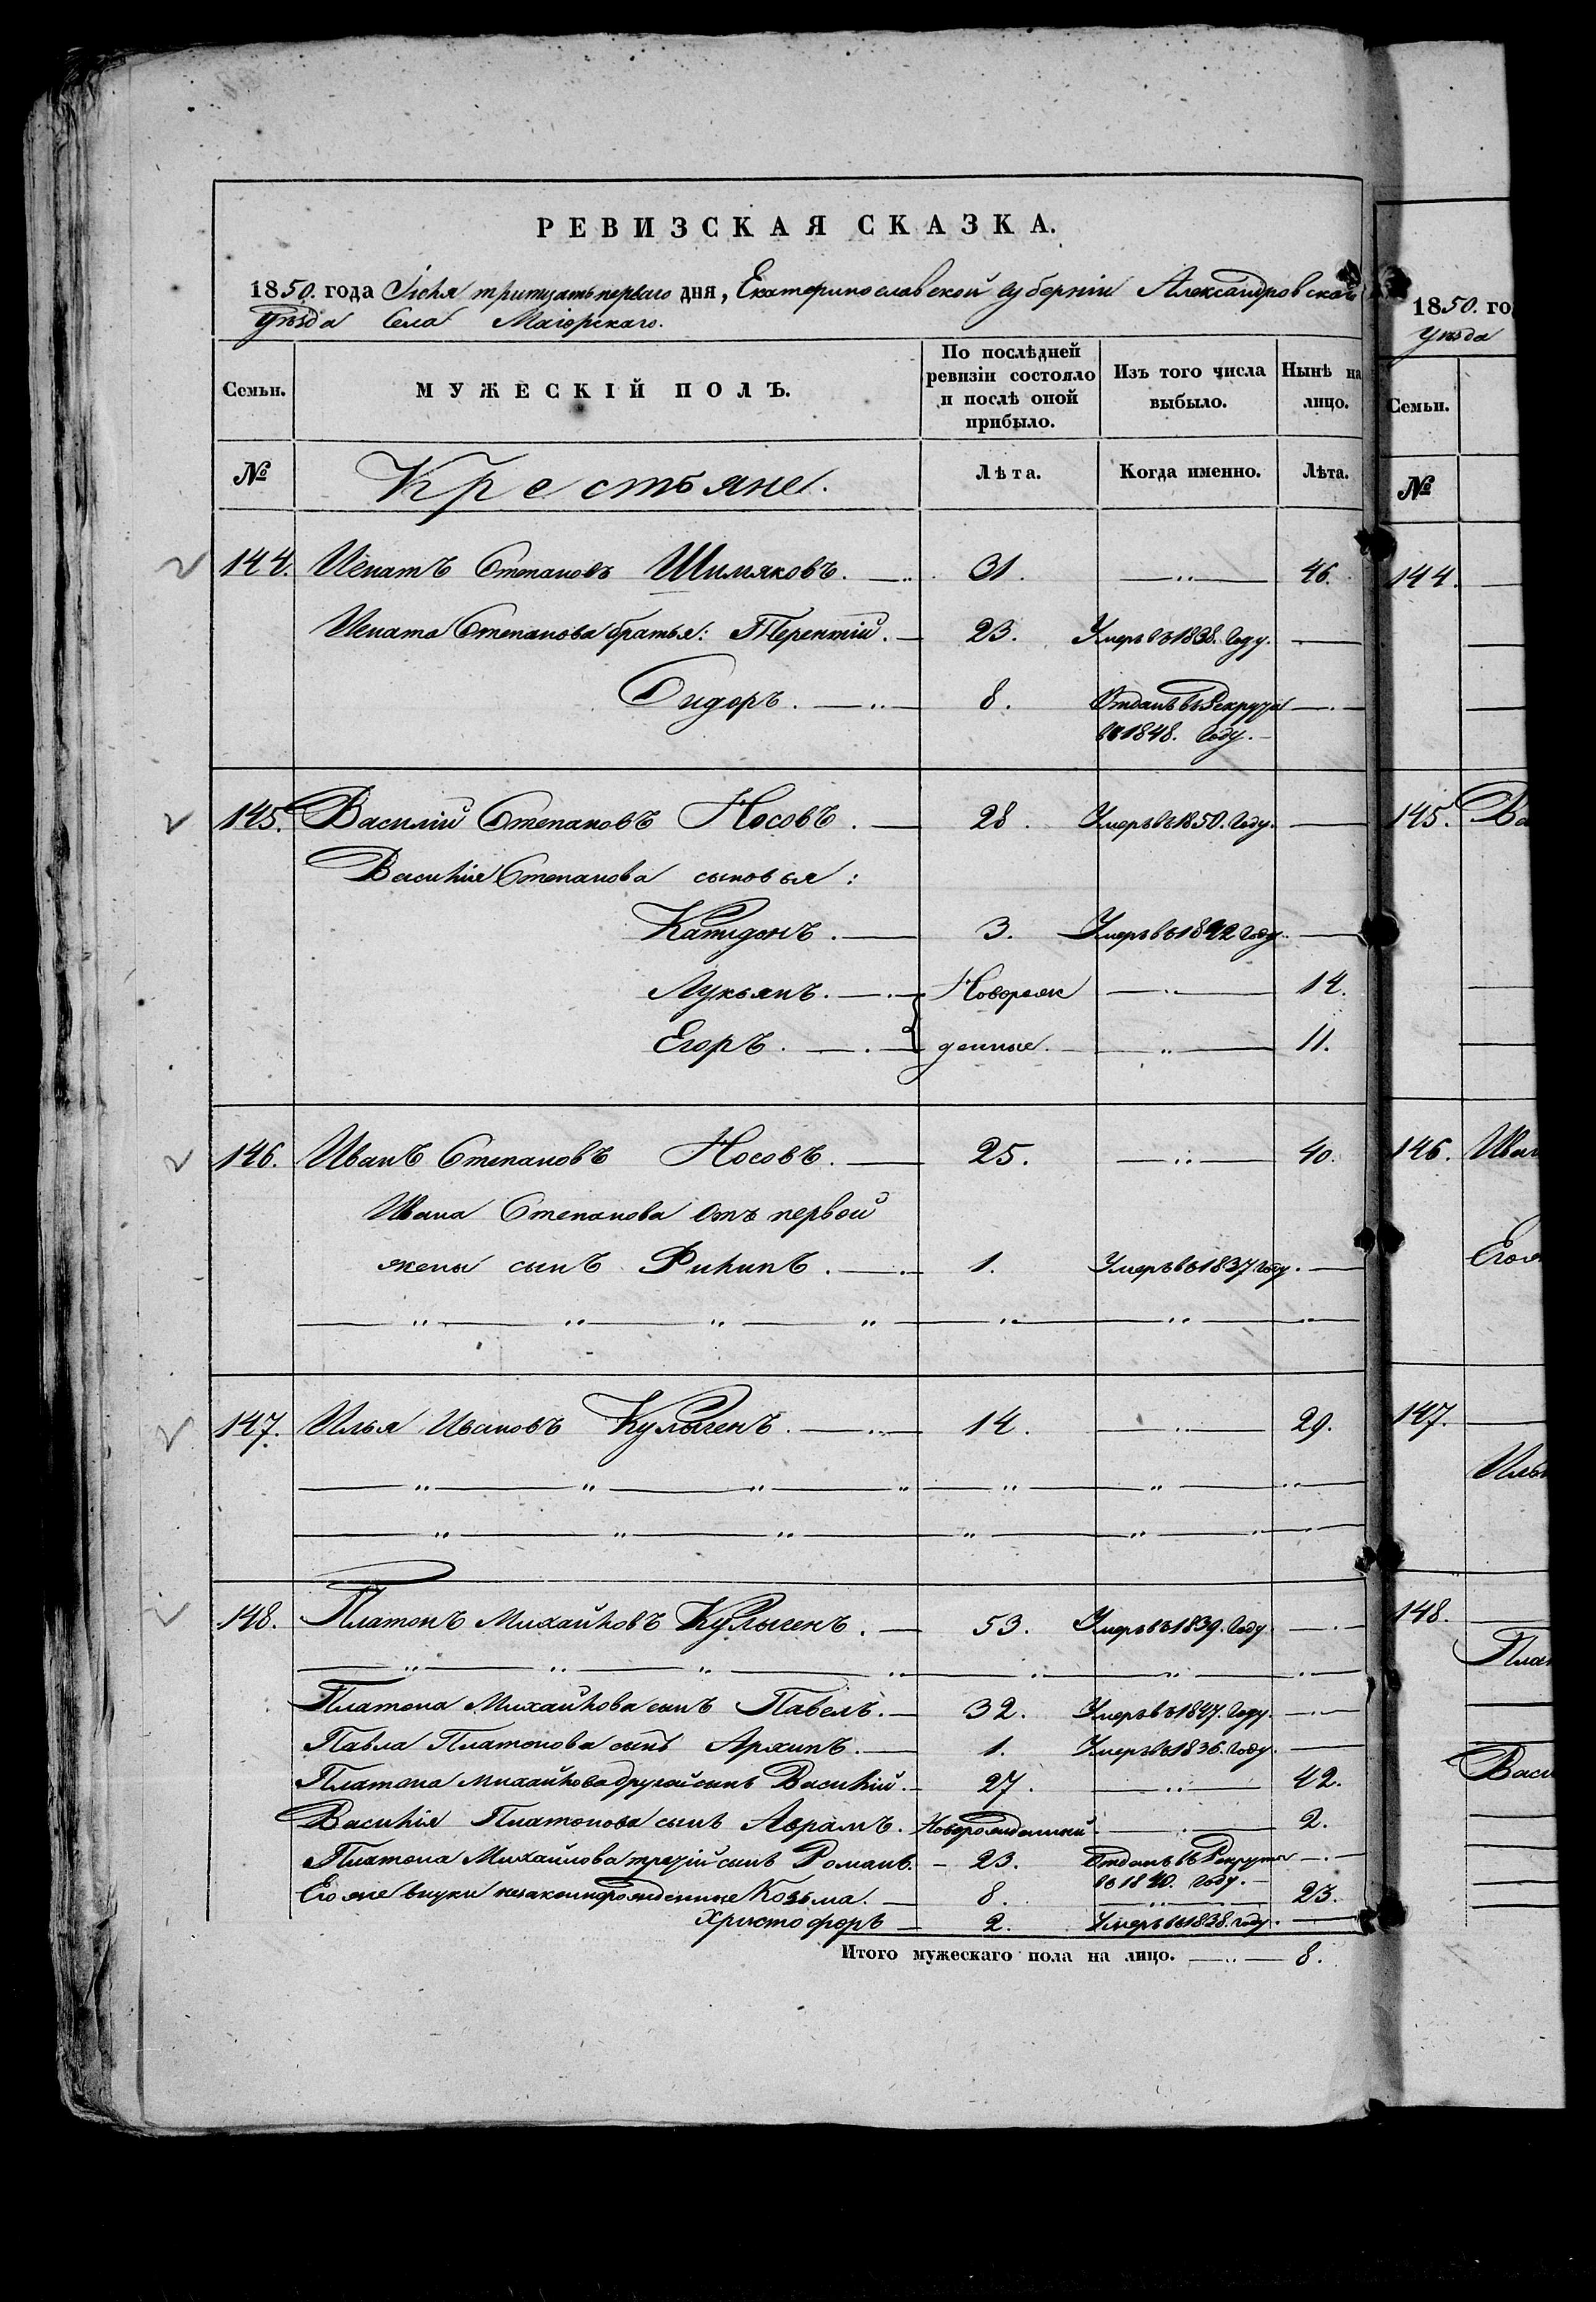 РЕВИЗСКАЯ СКАЗКА.
1850. года Іюля тритцать перваго дня, Екатеринославской губерніи Александровскаго
уѣзда Села Маіорскаго.
Семьи. МУЖЕСКІЙ ПОЛЪ. По послѣдней ревизіи состояло и послѣ оной прибыло. Изъ того числа выбыло. Нынѣ на лицо.
№ Крестьяне. Лѣта. Когда именно. Лѣта.
144. Игнатъ Степановъ Шимяковъ. 31. 46.
Игната Степанова братья: Терентій. 23. Умеръ въ 1838. Году.
Сидоръ. 8. Отданъ въ Рекруты
въ 1848. Году.
145. Василій Степановъ Носовъ. 28. Умеръ въ 1850. Году.
Василія Степанова сыновья:
3. Умеръ въ 1842 Году.
Лукьянъ. Новорож 14.
Егоръ. денные. 11.
146. Иванъ Степановъ Носовъ. 25. 40.
Ивана Степанова отъ первой
жены сынъ Филипъ. 1. Умеръ въ 1837 Году.
147. Илья Ивановъ Кулыгенъ. 14. 29.
148. Платонъ Михайловъ Кулыгенъ. 53. Умеръ въ 1839. Году.
Платона Михайлова сынъ Павелъ. 32. Умеръ въ 1847. Году.
Павла Платонова сынъ Архипъ. 1. Умеръ въ 1836. Году.
Платона Михайлова другой сынъ Василій. 27. 42.
Василія Платонова сынъ Аврамъ. Новорожденный. 2.
Платона Михайлова третій сынъ Романъ. 23. Отданъ въ Рекруты
въ 1840. Году.
Его же внуки незаконнорожденные Козьма. 8. 23.
Христофоръ 2. Умеръ въ 1838. году.
Итого мужескаго пола на лицо. 8.
1850. го
уѣзда
Семьи.
№
144.
145. Ва
146. Иван
Его ж
147.
Ильи
148.
Плат
Васи